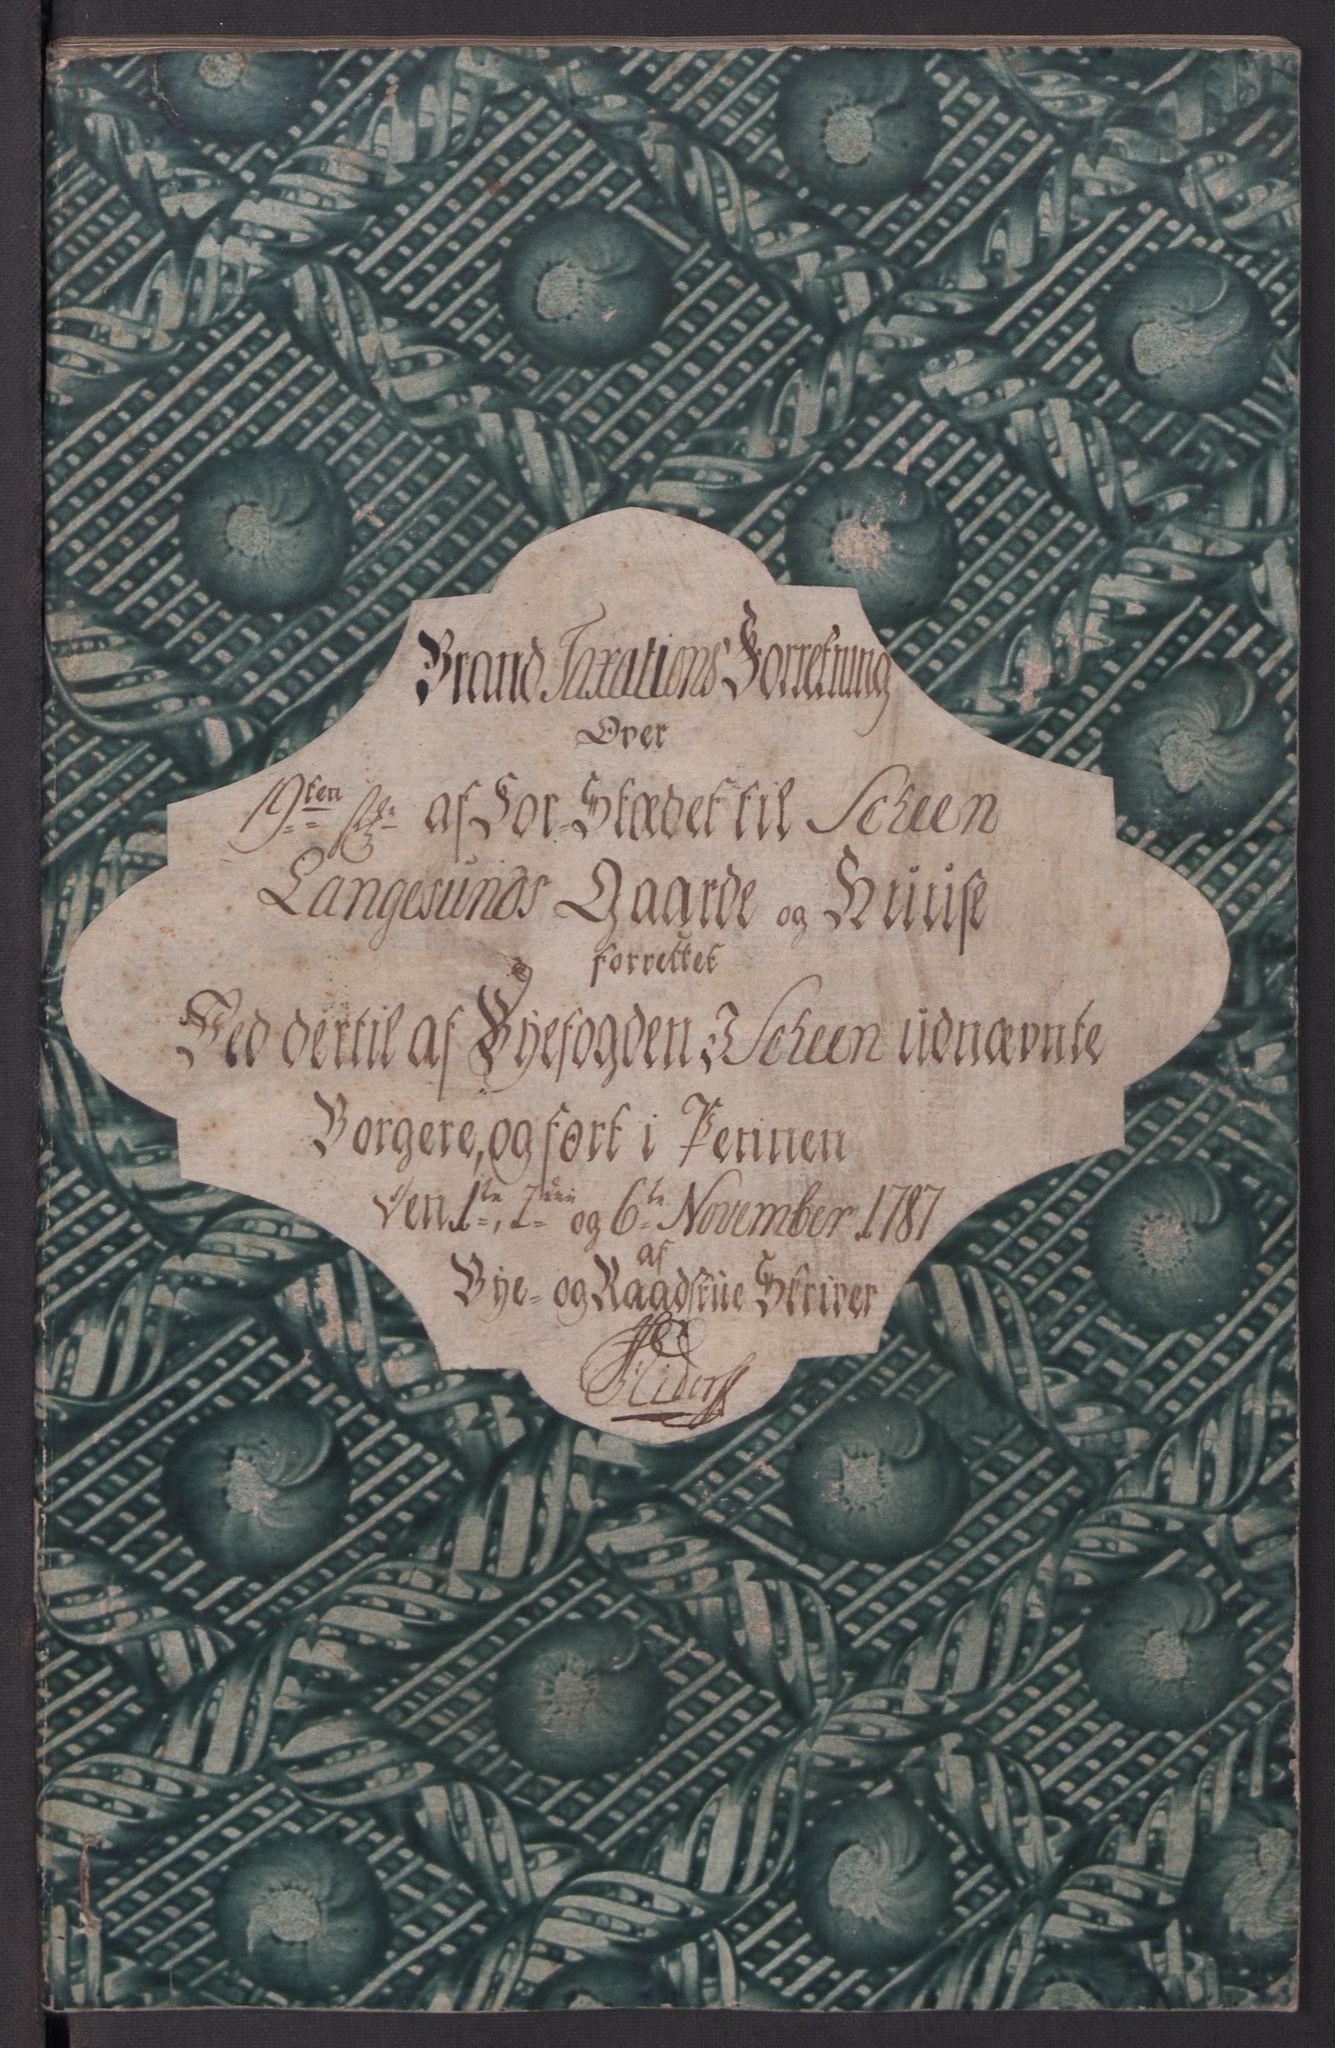 Brand Taxations Forretning
Over
19ten af Lor-Stædet til Scheen
Langesunds Gaarde og Huuse
forrettet
Ved dertil af Byefogden I Scheen udnævnte
Borgere, og ført i Pennen
Den 1te, 2den og 6te November 1787
af
Bye- og Raadstue Skriver